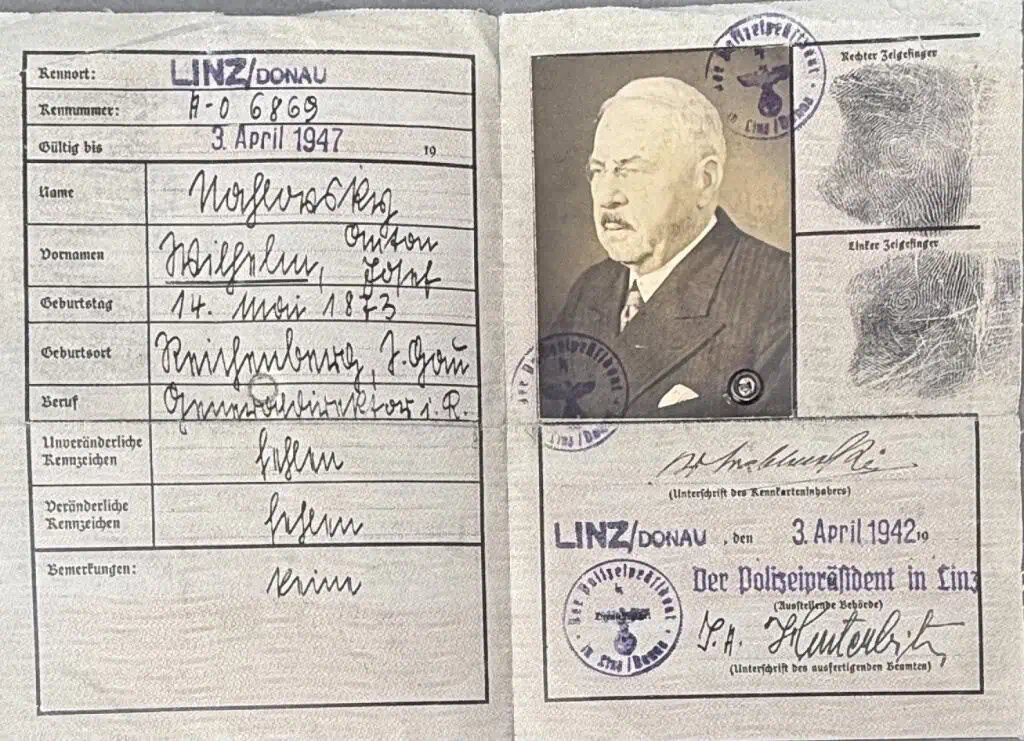 Kennort: LINZ/DONAU
Kennummer: A-0 6869
Gültig bis 3. April 1947 19
Name Nahlovsky
Vornamen Wilhelm, Anton
Josef
Geburtstag 14. Mai 1873
Geburtsort Reichenberg, S. Gau
Beruf Generaldirektor i. R.
Unveränderliche
Kennzeichen fehlen
Veränderliche
Kennzeichen fehlen
Bemerkungen: keine
Der Polizeipräsident
in Linz/Donau
Rechter Zeigefinger
Linker Zeigefinger
Der Polizeipräsident
in Linz/Donau
(Unterschrift des Kennkarteninhabers)
LINZ/DONAU, den 3. April 1942 19
Der Polizeipräsident in Linz
(Ausstellende Behörde)
Der Polizeipräsident
in Linz/Donau
I. A.
(Unterschrift des ausfertigenden Beamten)